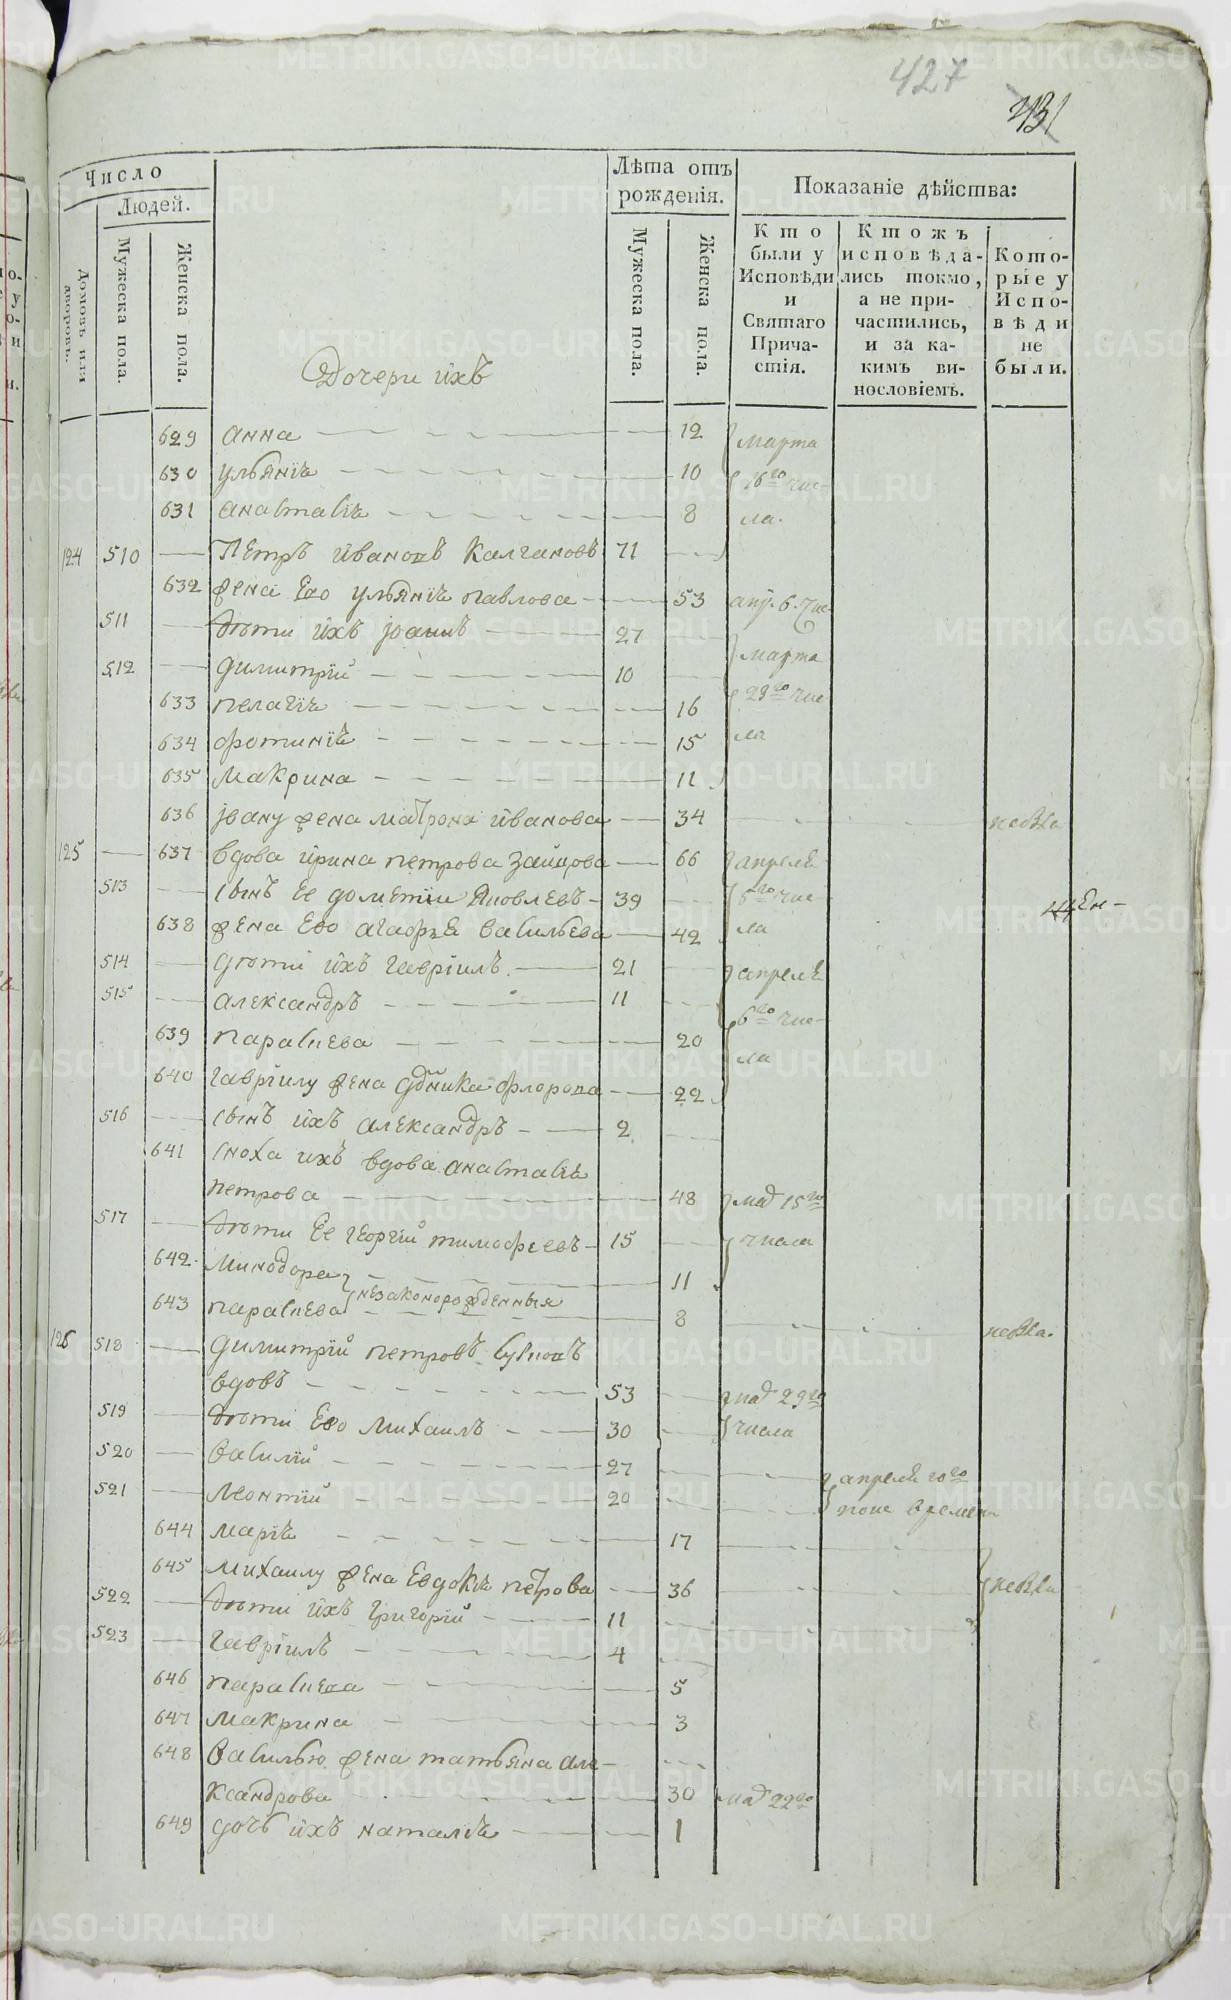 427
431
Число
Людей.
Домовъ или дворовъ.
Мужеска пола.
Женска пола.
Лѣта отъ рожденія.
Мужеска пола.
Женска пола.
Показаніе дѣйства:
Кто были у Исповѣди и Святаго Причастія.
Ктожъ исповѣдались токмо, а не причастились, и за какимъ винословіемъ.
Которые у Исповѣди не были.
Дочери ихъ
629 анна 12 марта
630 ульянія 10 16го чис-
631 анастасія 8 ла.
124 510 Петръ Ивановъ Калгановъ 71
632 жена Его ульянія павлова 53 апр. 6. чис
511 дѣти ихъ Іоаннъ 27
512 димитрій 10 марта
633 пелагія 16 29го чис
634 фотинія 15 ла
635 макрина 11
636 Івану жена матрона иванова 34
125 637 вдова ирина петрова зайцова 66 апреля
513 сынъ ее дометіи Яковлевъ 39 5го чис
638 жена Его агафья васильева 42 ла
514 дѣти ихъ гавріилъ 21 апреля
515 александръ 11 6го чис-
639 параскева 20 ла
640 гавріилу жена Фларова 22
516 сынъ ихъ александръ 2
641 сноха ихъ вдова анастасія
петрова 48 маія 15го
517 дѣти Ее георгій тимофеевъ 15 числа
642 минодора 11
643 параскева незаконорожденныя 8
126 518 димитрій петровъ
вдовъ 53 маія 29го
519 дѣти Его михаилъ 30 числа
520 василій 27 апреля 20го
521 леонтій 20
644 марія 17
645 михаилу жена Евдокія петрова 36
522 дѣти ихъ григорій 11
523 гавріилъ 4
646 параскева 5
647 макрина 3
648 василью жена татьяна але-
ксандрова 30 маія 22го
649 дочь ихъ наталія 1
METRIKI.GASO-URAL.RU